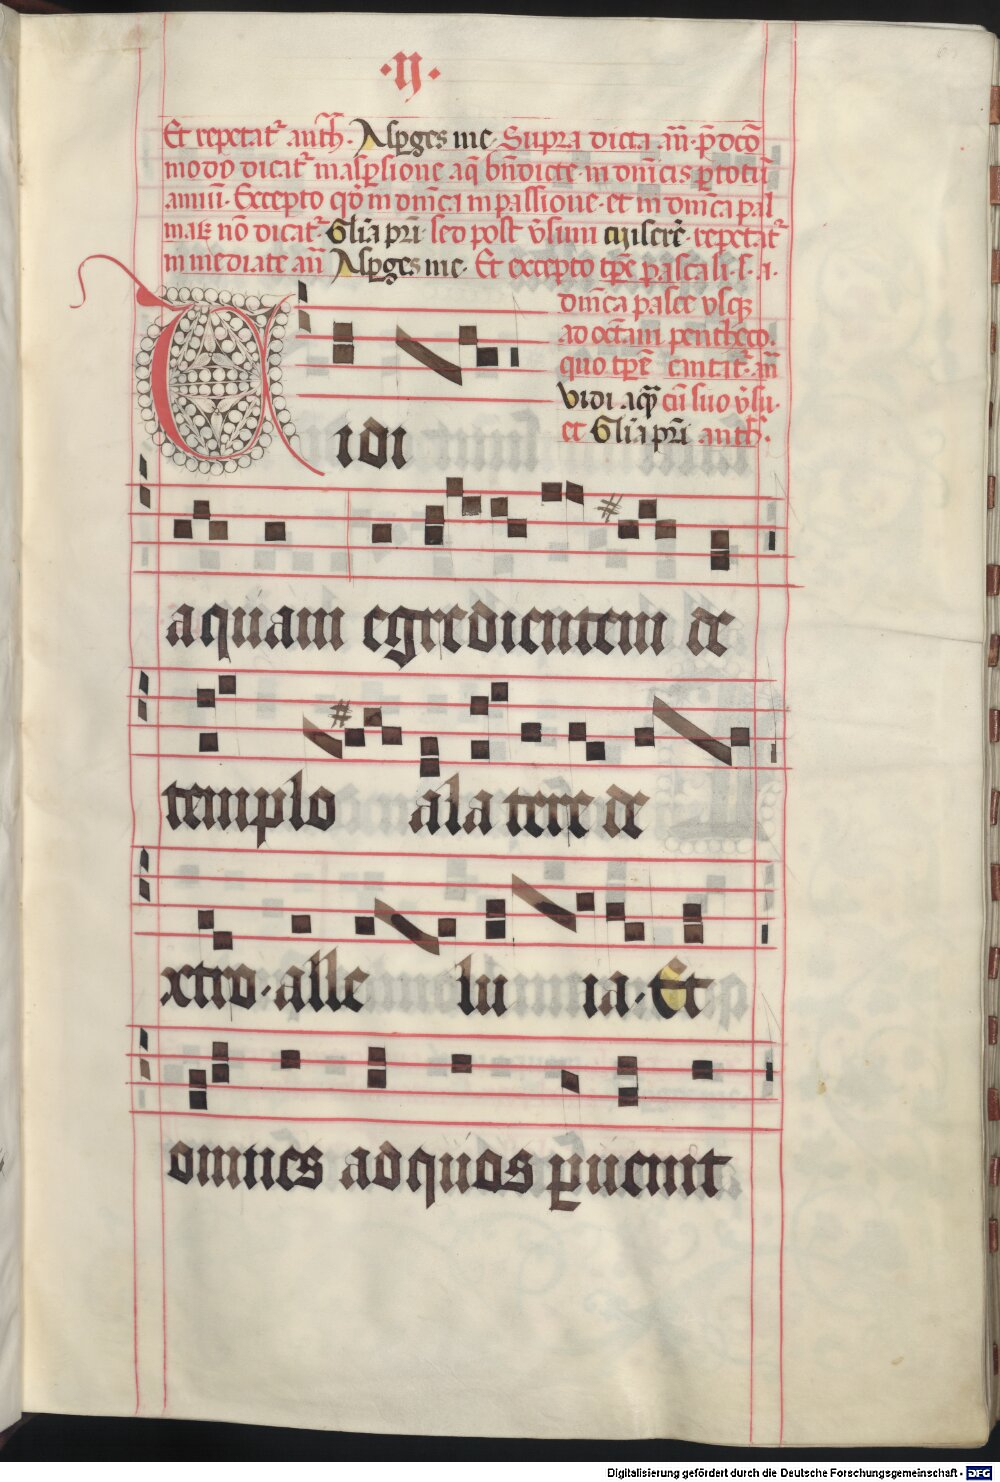 ·ij·
Et repetat᷑ anth̃. Asp̱ges me. Supra dicta an̄. p̄dc̄o
modo dicat᷑ in asp̱sione aq̄ bn̄dicte. in dn̄icis p̱ totū
annū. Excepto qd̄ in dn̄ica in passione. et in dn̄ica pal
maꝝ nō dicat᷑. Gl̄ia pr̄i. sed post v̄sum Miserē. repetat᷑
inmediate an̄ Asp̱ges me. Et excepto tp̄e paschali. s. a.
dn̄ica pasce vsqꝫ
ad octam penthēco.
quo tp̄e cantat᷑. an̄
Vidi aq̄ cū suo v̄su.
et Gl̄ia pr̄i anth̄.
Vidi
aquam egredientem de
templo a latere de
xtro. alle lu ia. Et
omnes ad quos p̱uenit
Digitalisierung gefördert durch die Deutsche Forschungsgemeinschaft - DFG